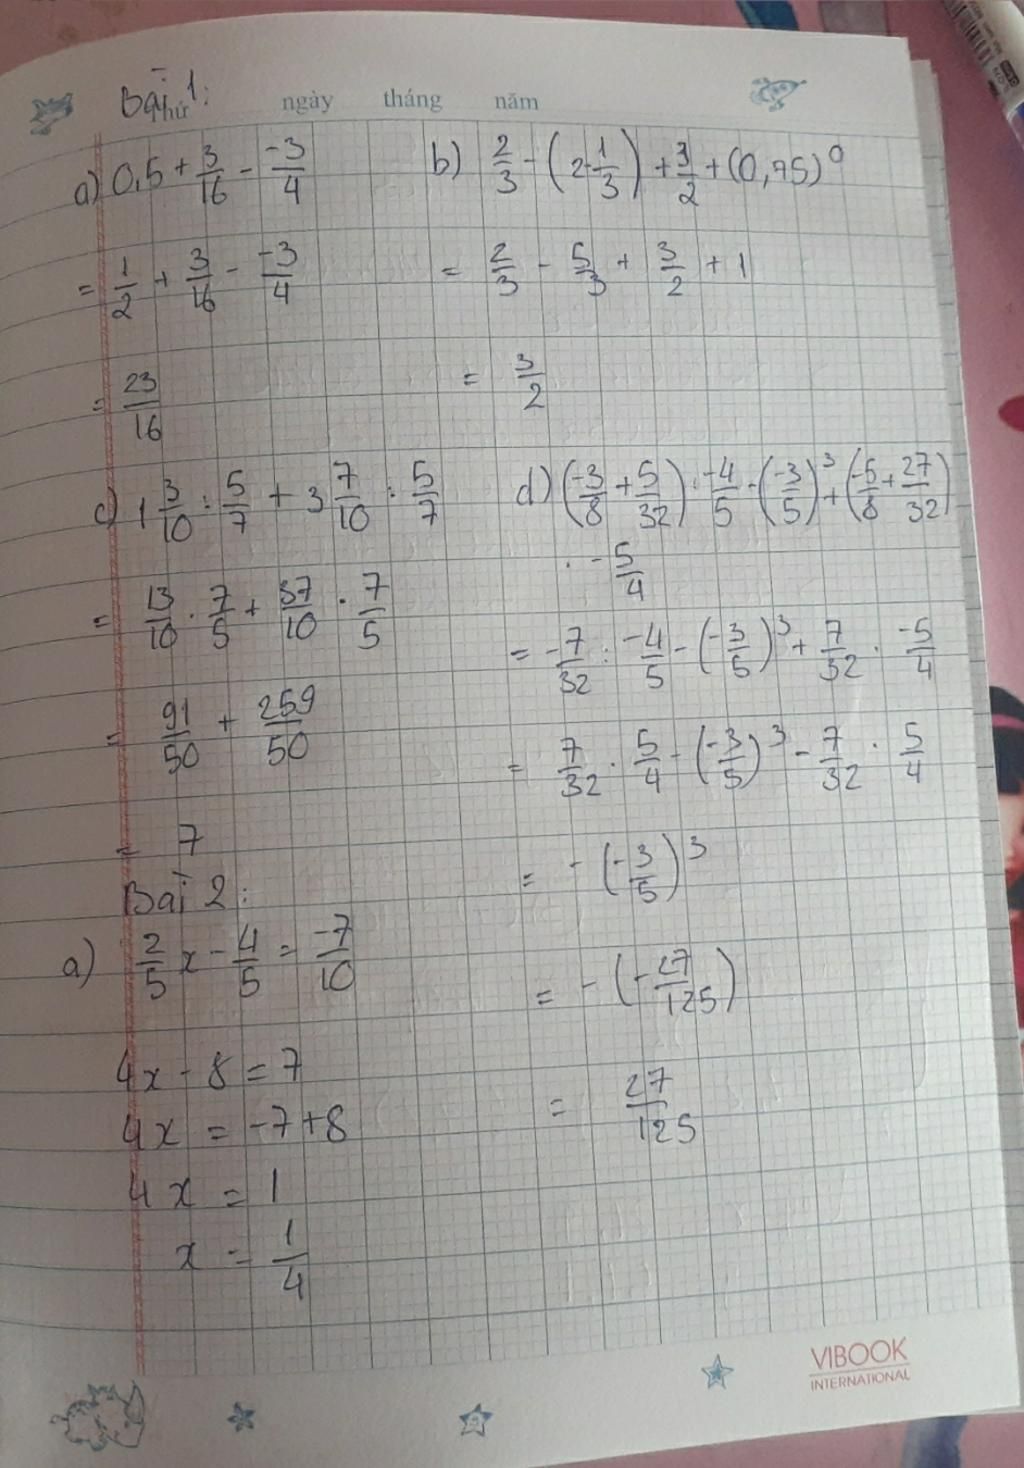 Bài 1:
Thứ ngày tháng năm
a) 0,5 + 3/16 - -3/4
= 1/2 + 3/16 - -3/4
= 23/16
b) 2/3 - (2-1/3) + 3/2 + (0,75)^0
= 2/3 - 5/3 + 3/2 + 1
= 3/2
c) 1 3/10 : 5/7 + 3 7/10 : 5/7
= 13/10 . 7/5 + 37/10 . 7/5
= 91/50 + 259/50
= 7
d) (-3/8 + 5/32) : -4/5 - (-3/5)^3 + (-5/8 + 27/32)
. -5/4
= -7/32 : -4/5 - (-3/5)^3 + 7/32 . -5/4
= 7/32 . 5/4 - (-3/5)^3 - 7/32 . 5/4
= - (-3/5)^3
= - (-27/125)
= 27/125
Bài 2:
a) 2/5 x - 4/5 = -7/10
4x - 8 = 7
4x = -7 + 8
4x = 1
x = 1/4
VIBOOK
INTERNATIONAL